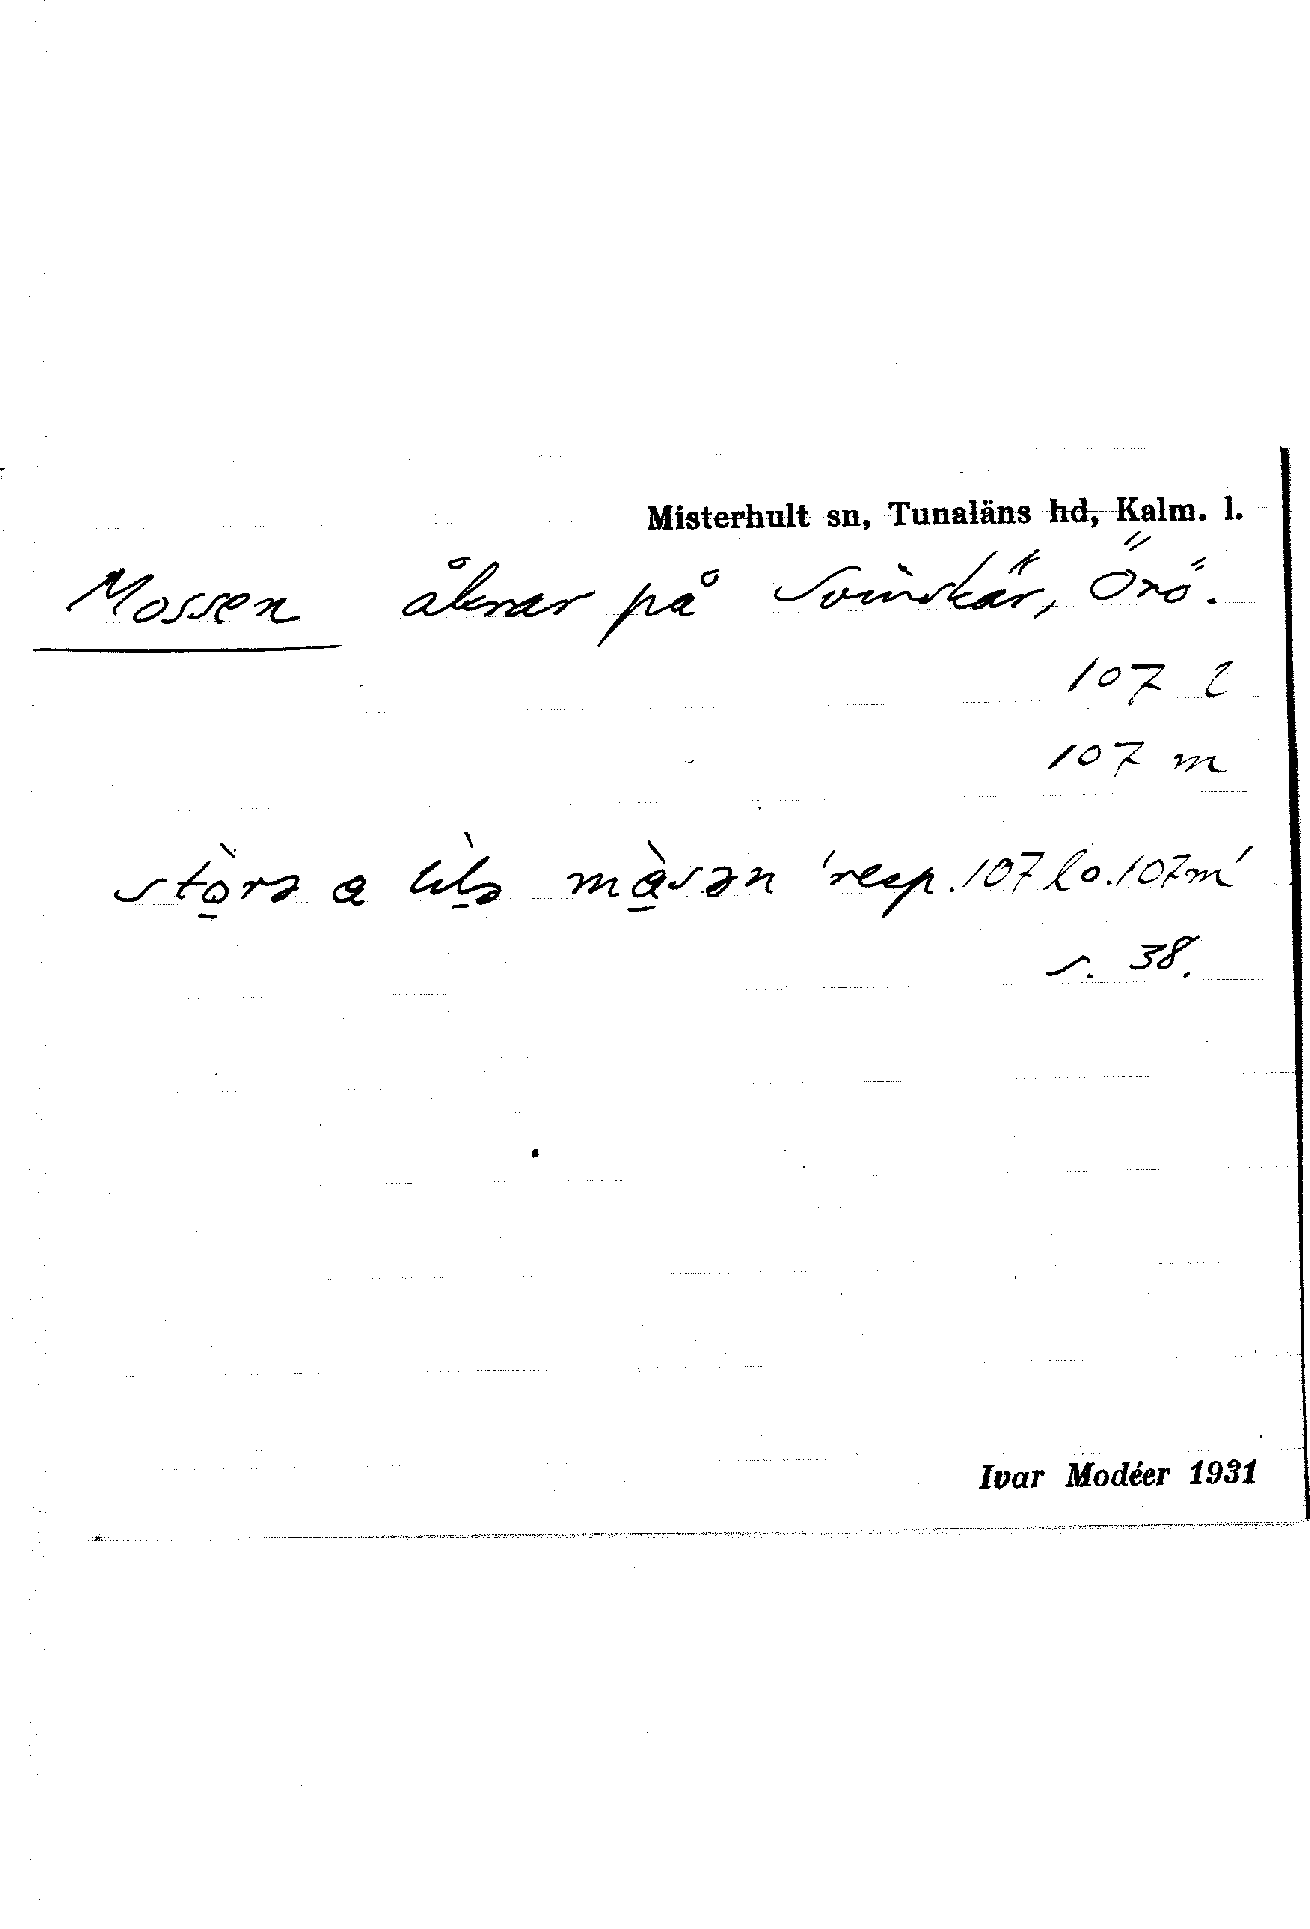 Misterhult sn, Tunaläns hd, Kalm. l.
Mossen åkrar på Svinskär, Örö.
107 l
107 m
stò̱rə a lìḻə mà̱sən 'resp. 107 l o. 107 m'
s. 38.
Ivar Modéer 1931